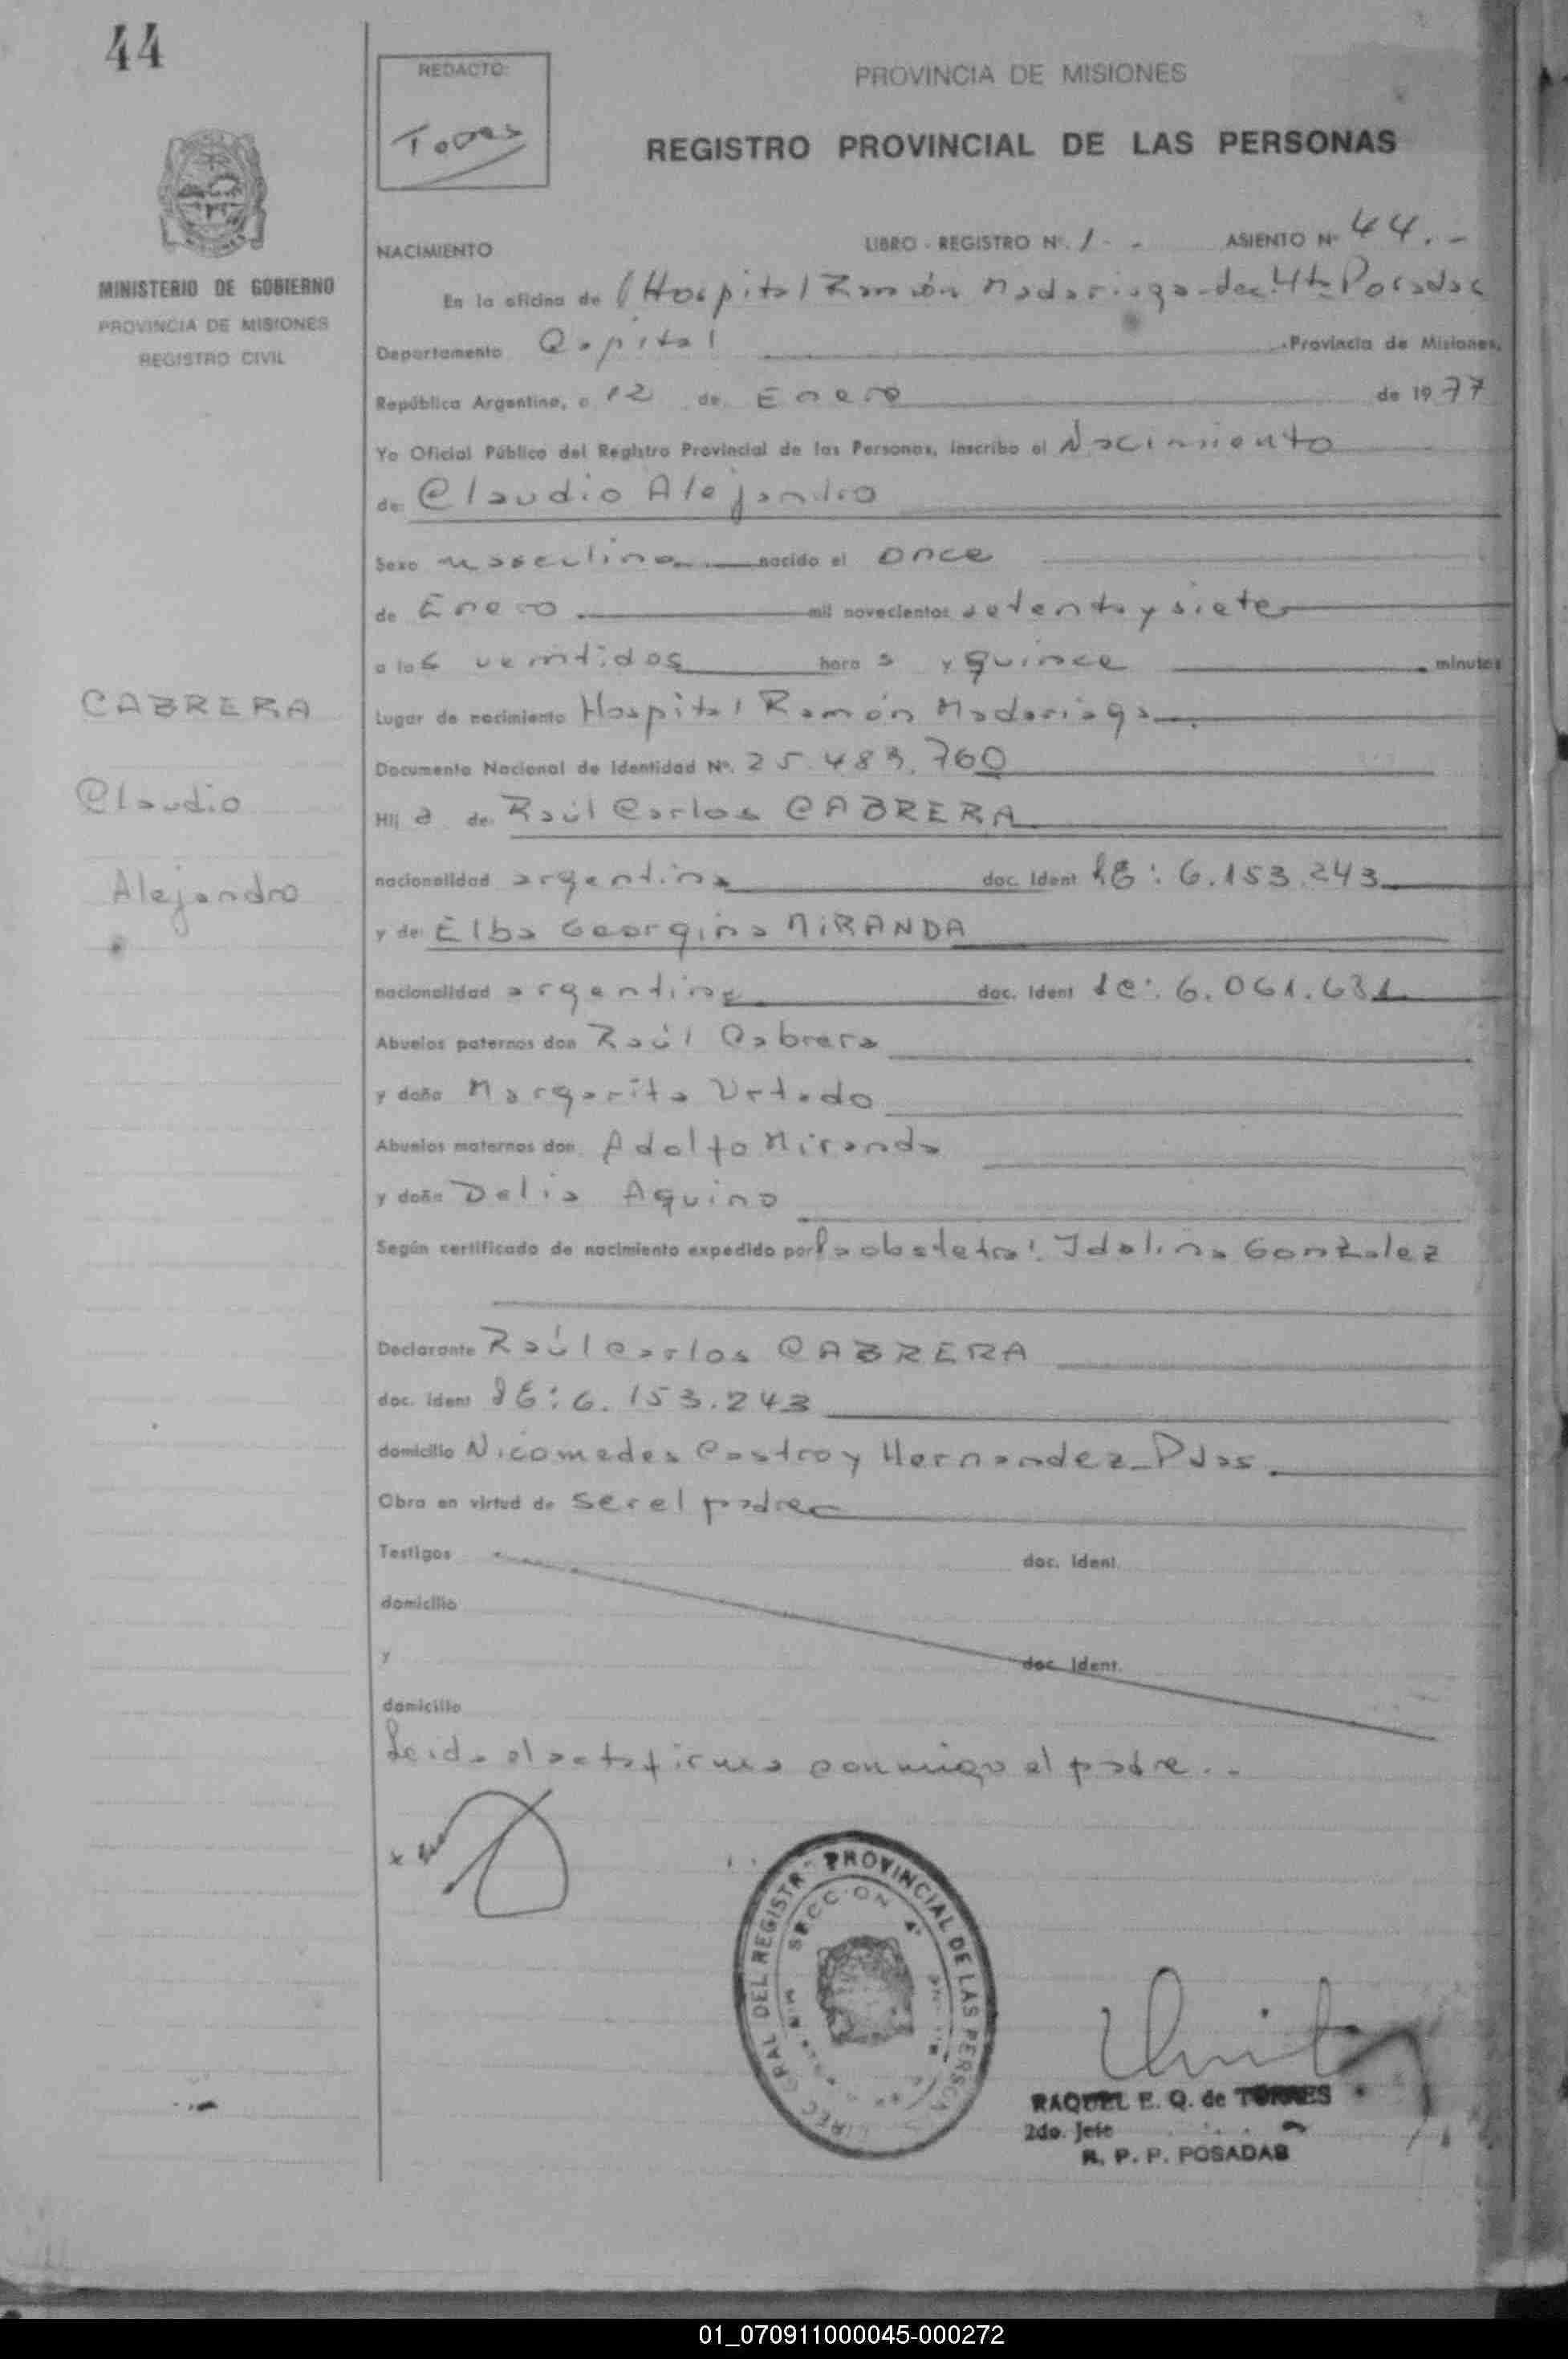 44
REDACTO:
Torres
PROVINCIA DE MISIONES
REGISTRO PROVINCIAL DE LAS PERSONAS
MINISTERIO DE GOBIERNO
PROVINCIA DE MISIONES
REGISTRO CIVIL
NACIMIENTO
LIBRO - REGISTRO Nº. 1 - - ASIENTO Nº 44.-
En la oficina de Hospital Ramón Madariaga Posadas
Departamento Capital Provincia de Misiones,
República Argentina, a 12 de Enero de 1977
Yo Oficial Público del Registro Provincial de las Personas, inscribo el Nacimiento
de: Claudio Alejandro
Sexo masculino nacido el once
de Enero mil novecientos setenta y siete
a las veintidos hora s y quince minutos
Lugar de nacimiento Hospital Ramón Madariaga.
Documento Nacional de Identidad Nº. 25.483.760
Hij o de: Raúl Carlos CABRERA
nacionalidad argentina doc. Ident LE: 6.153.243
y de: Elba Georgina MIRANDA
nacionalidad argentina doc. Ident LC: 6.061.631
Abuelos paternos don Raúl Cabrera
y doña Margarita Urtado
Abuelos maternos don Adolfo Miranda
y doña Delia Aquino
Según certificado de nacimiento expedido por la obstetra: Idalina Gonzalez
Declarante Raúl Carlos CABRERA
doc. ident LE: 6.153.243
domicilio Nicomedes Castro y Hernandez - Pdas.
Obra en virtud de ser el padre
Testigos doc. Ident.
domicilio
y doc. Ident.
domicilio
Leida el acta firma conmigo el padre.-
CABRERA
Claudio
Alejandro
DEL REGISTRO PROVINCIAL DE LAS PERSONAS
SECCION 4ª
RAQUEL E. Q. de TORRES
2do. Jefe
R. P. P. POSADAS
01_070911000045-000272